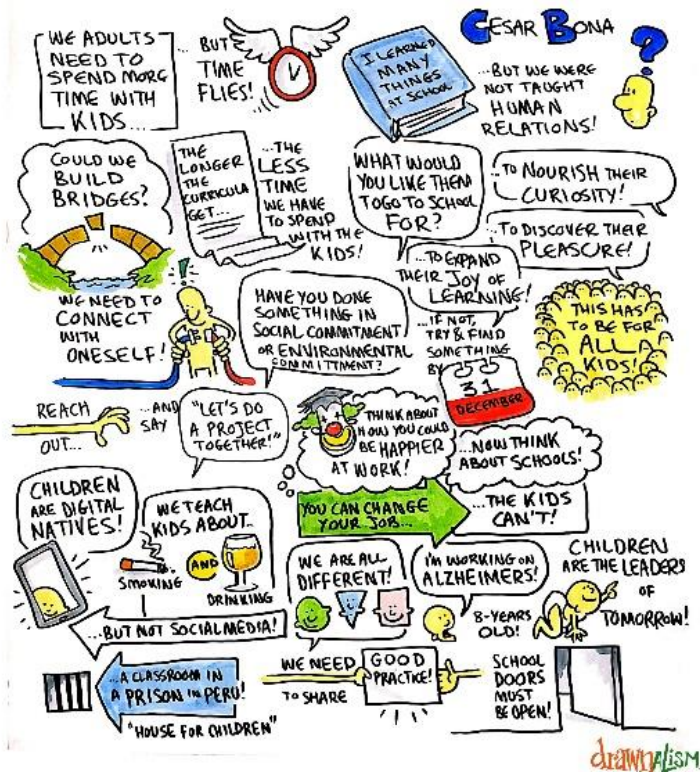 CESAR BONA
WE ADULTS
NEED TO
SPEND MORE
TIME WITH
KIDS...
... BUT
TIME
FLIES!
I LEARNED
MANY
THINGS
AT SCHOOL
...BUT WE WERE
NOT TAUGHT
HUMAN
RELATIONS!
COULD WE
BUILD
BRIDGES?
THE
LONGER
THE
CURRICULA
GET...
...THE
LESS
TIME
WE HAVE
TO SPEND
WITH THE
KIDS!
WHAT WOULD
YOU LIKE THEM
TO GO TO SCHOOL
FOR?
...TO NOURISH THEIR
CURIOSITY!
...TO DISCOVER THEIR
PLEASURE!
...TO EXPAND
THEIR JOY OF
LEARNING!
THIS HAS
TO BE FOR
ALL
KIDS!
WE NEED TO
CONNECT
WITH
ONESELF!
HAVE YOU DONE
SOMETHING IN
SOCIAL COMMITMENT
OR ENVIRONMENTAL
COMMITTMENT?
...IF NOT,
TRY & FIND
SOMETHING
BY
31
DECEMBER
REACH
OUT...
...AND
SAY
"LET'S DO
A PROJECT
TOGETHER!"
THINK ABOUT
HOW YOU COULD
BE HAPPIER
AT WORK!
...NOW THINK
ABOUT SCHOOLS!
YOU CAN CHANGE
YOUR JOB...
...THE KIDS
CAN'T!
CHILDREN
ARE DIGITAL
NATIVES!
WE TEACH
KIDS ABOUT..
SMOKING
AND
DRINKING
...BUT NOT SOCIAL MEDIA!
WE ARE ALL
DIFFERENT!
I'M WORKING ON
ALZHEIMERS!
8-YEARS
OLD!
CHILDREN
ARE THE LEADERS
OF
TOMORROW!
...A CLASSROOM IN
A PRISON IN PERU!
"HOUSE FOR CHILDREN"
WE NEED
TO SHARE
GOOD
PRACTICE!
SCHOOL
DOORS
MUST
BE OPEN!
drawnalism